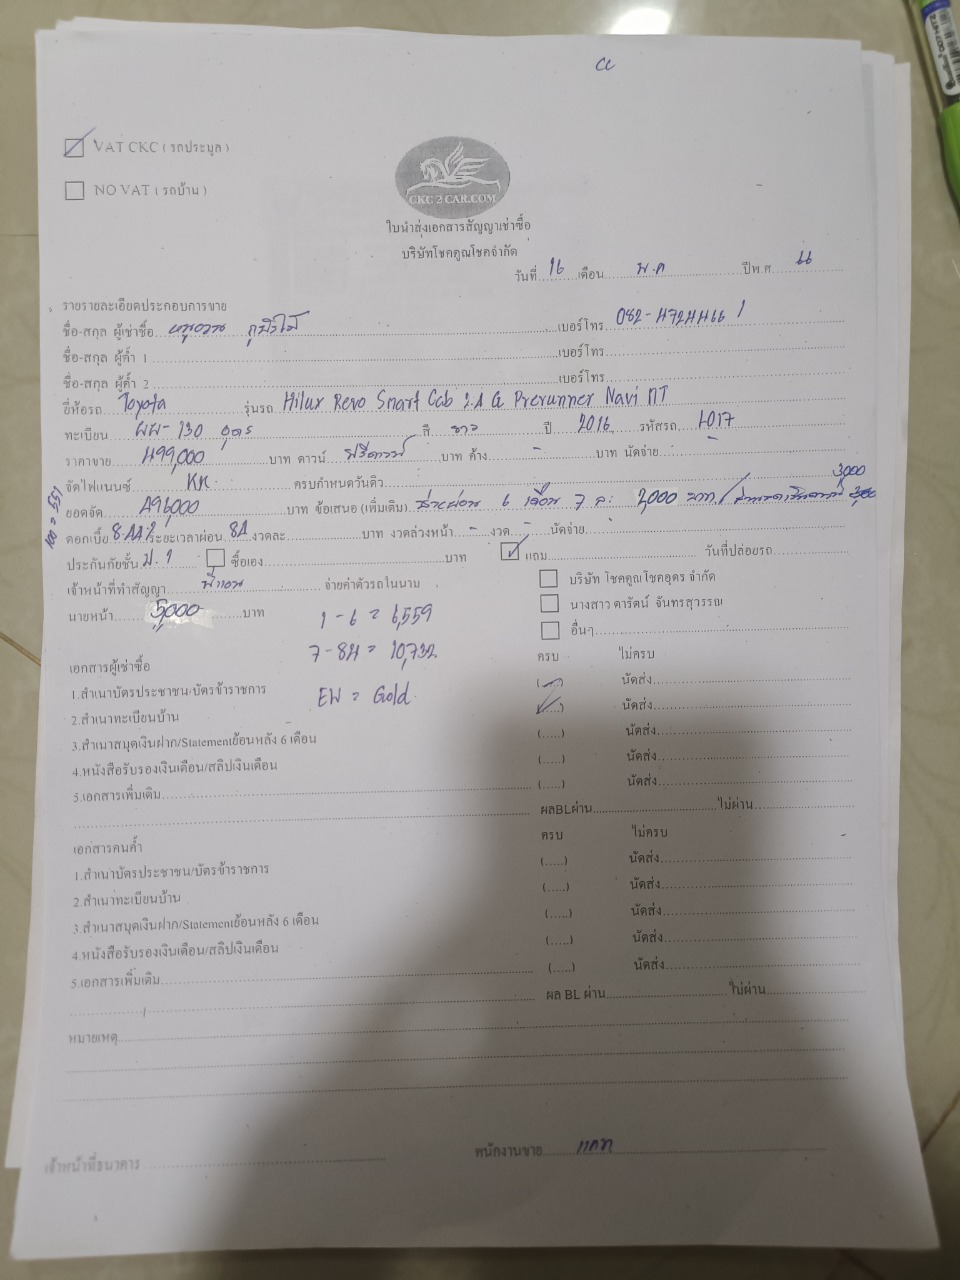 cc
VAT CKC ( รถประมูล )
NO VAT ( รถบ้าน )
CKC 2 CAR.COM
ใบนำส่งเอกสารสัญญาเช่าซื้อ
บริษัทโชคคูณโชคจำกัด
วันที่ 16 เดือน พ.ค ปีพ.ศ.
รายรายละเอียดประกอบการขาย
ชื่อ-สกุล ผู้เช่าซื้อ เบอร์โทร
ชื่อ-สกุล ผู้ค้ำ 1 เบอร์โทร
ชื่อ-สกุล ผู้ค้ำ 2 เบอร์โทร
ยี่ห้อรถ Toyota รุ่นรถ Hilux Revo Smart Cab 2.4 G Prerunner Navi MT
ทะเบียน ผผ-130 อุดร สี ขาว ปี 2016 รหัสรถ 1017
ราคาขาย 499,000 บาท ดาวน์ ฟรีดาวน์ บาท ค้าง - บาท นัดจ่าย -
จัดไฟแนนซ์ KK ครบกำหนดวันดิว 3,000
ยอดจัด 496,000 บาท ข้อเสนอ (เพิ่มเติม) 6 เดือน ๆ ละ 2,000 บาท
ดอกเบี้ย ระยะเวลาผ่อน 84 งวดละ บาท งวดล่วงหน้า - งวด - นัดจ่าย
ประกันภัยชั้น ป.1 ซื้อเอง บาท แถม วันที่ปล่อยรถ
เจ้าหน้าที่ทำสัญญา จ่ายค่าตัวรถในนาม บริษัท โชคคูณโชคอุดร จำกัด
นางสาว ดารัตน์ จันทรสุวรรณ
นายหน้า 5,000 บาท 1 - 6 = 6,559 อื่นๆ
7 - 84 = 10,732
เอกสารผู้เช่าซื้อ ครบ ไม่ครบ
1.สำเนาบัตรประชาชน/บัตรข้าราชการ EW = Gold (.....) นัดส่ง
2.สำเนาทะเบียนบ้าน (.....) นัดส่ง
3.สำเนาสมุดเงินฝาก/Statementย้อนหลัง 6 เดือน (.....) นัดส่ง
4.หนังสือรับรองเงินเดือน/สลิปเงินเดือน (.....) นัดส่ง
5.เอกสารเพิ่มเติม (.....) นัดส่ง
ผลBLผ่าน ไม่ผ่าน
เอกสารคนค้ำ ครบ ไม่ครบ
1.สำเนาบัตรประชาชน/บัตรข้าราชการ (.....) นัดส่ง
2.สำเนาทะเบียนบ้าน (.....) นัดส่ง
3.สำเนาสมุดเงินฝาก/Statementย้อนหลัง 6 เดือน (.....) นัดส่ง
4.หนังสือรับรองเงินเดือน/สลิปเงินเดือน (.....) นัดส่ง
5.เอกสารเพิ่มเติม (.....) นัดส่ง
ผล BL ผ่าน ไม่ผ่าน
หมายเหตุ
เจ้าหน้าที่ธนาคาร พนักงานขาย